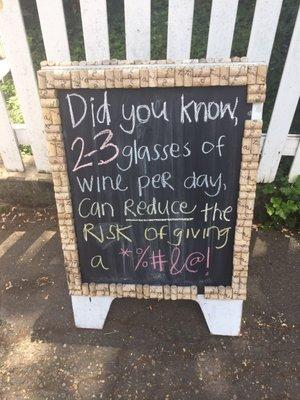 Did you know,
2-3 glasses of
wine per day,
Can Reduce the
RISK of giving
a *%#&@!